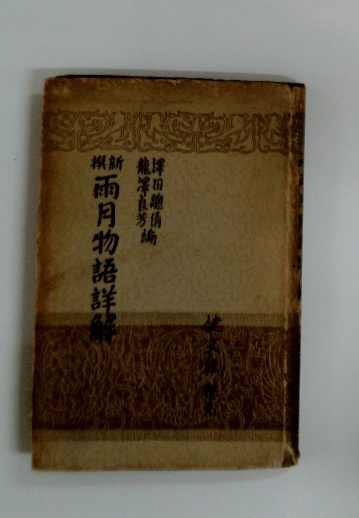 澤田總清
龍澤良芳編
新撰
雨月物語詳解
健文社